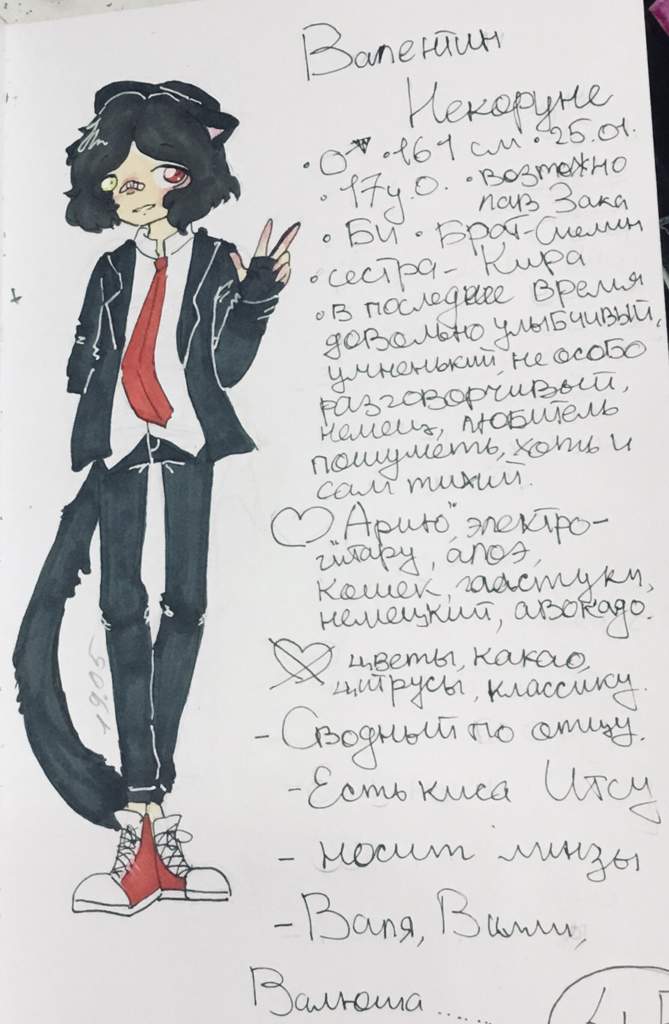 Валентин
Некоруне
• ♂ • 161 см • 25.01.
• 17 у.о. • возможно
Зака
• Би • Брат-
• сестра - Кира
• в последнее время
довольно улыбчивый,
умненький, не особо
разговорчивый,
немец, любитель
пошуметь, хоть и
сам тихий.
♡ "Арию", электро-
гитару, алоэ,
кошек, галстуки,
немецкий, авокадо.
цветы, какао,
цитрусы, классику.
- Сводный по отцу.
- Есть киса Итсу
- носит линзы
- Валя,
Валюша......
19.05